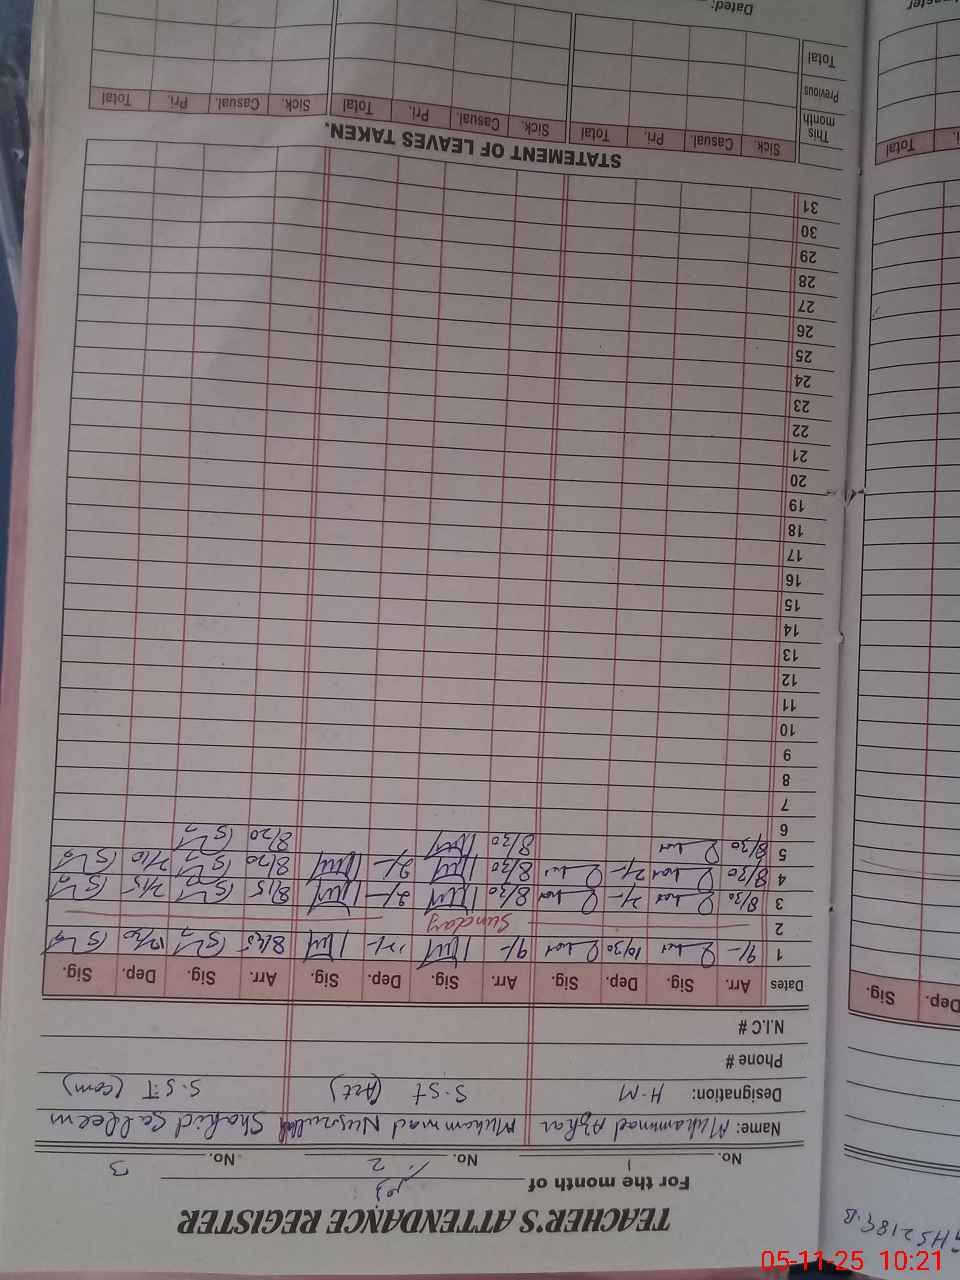 TEACHER'S ATTENDANCE REGISTER
For the month of
No. 1 No. 2 No. 3
Name: Muhammad Azhar Muhammad Nusrullah Shahid Saleem
Designation: H-M S-St (Art) S.S.T (Com)
Phone #
N.I.C #
Dates Arr. Sig. Dep. Sig. Arr. Sig. Dep. Sig. Arr. Sig. Dep. Sig.
1 9/- 10/30 9/- 8/45 12/30
2 Sunday
3 8/30 2/- 8/30 2/- 8/15 2/15
4 8/30 2/- 8/30 2/- 8/20 2/10
5 8/30 8/30 8/20
6
7
8
9
10
11
12
13
14
15
16
17
18
19
20
21
22
23
24
25
26
27
28
29
30
31
STATEMENT OF LEAVES TAKEN.
Sick. Casual. Pri. Total Sick. Casual. Pri. Total Sick. Casual. Pri. Total
This month
Previous
Total
Dated:
Dep. Sig.
Total
05-11-25 10:21